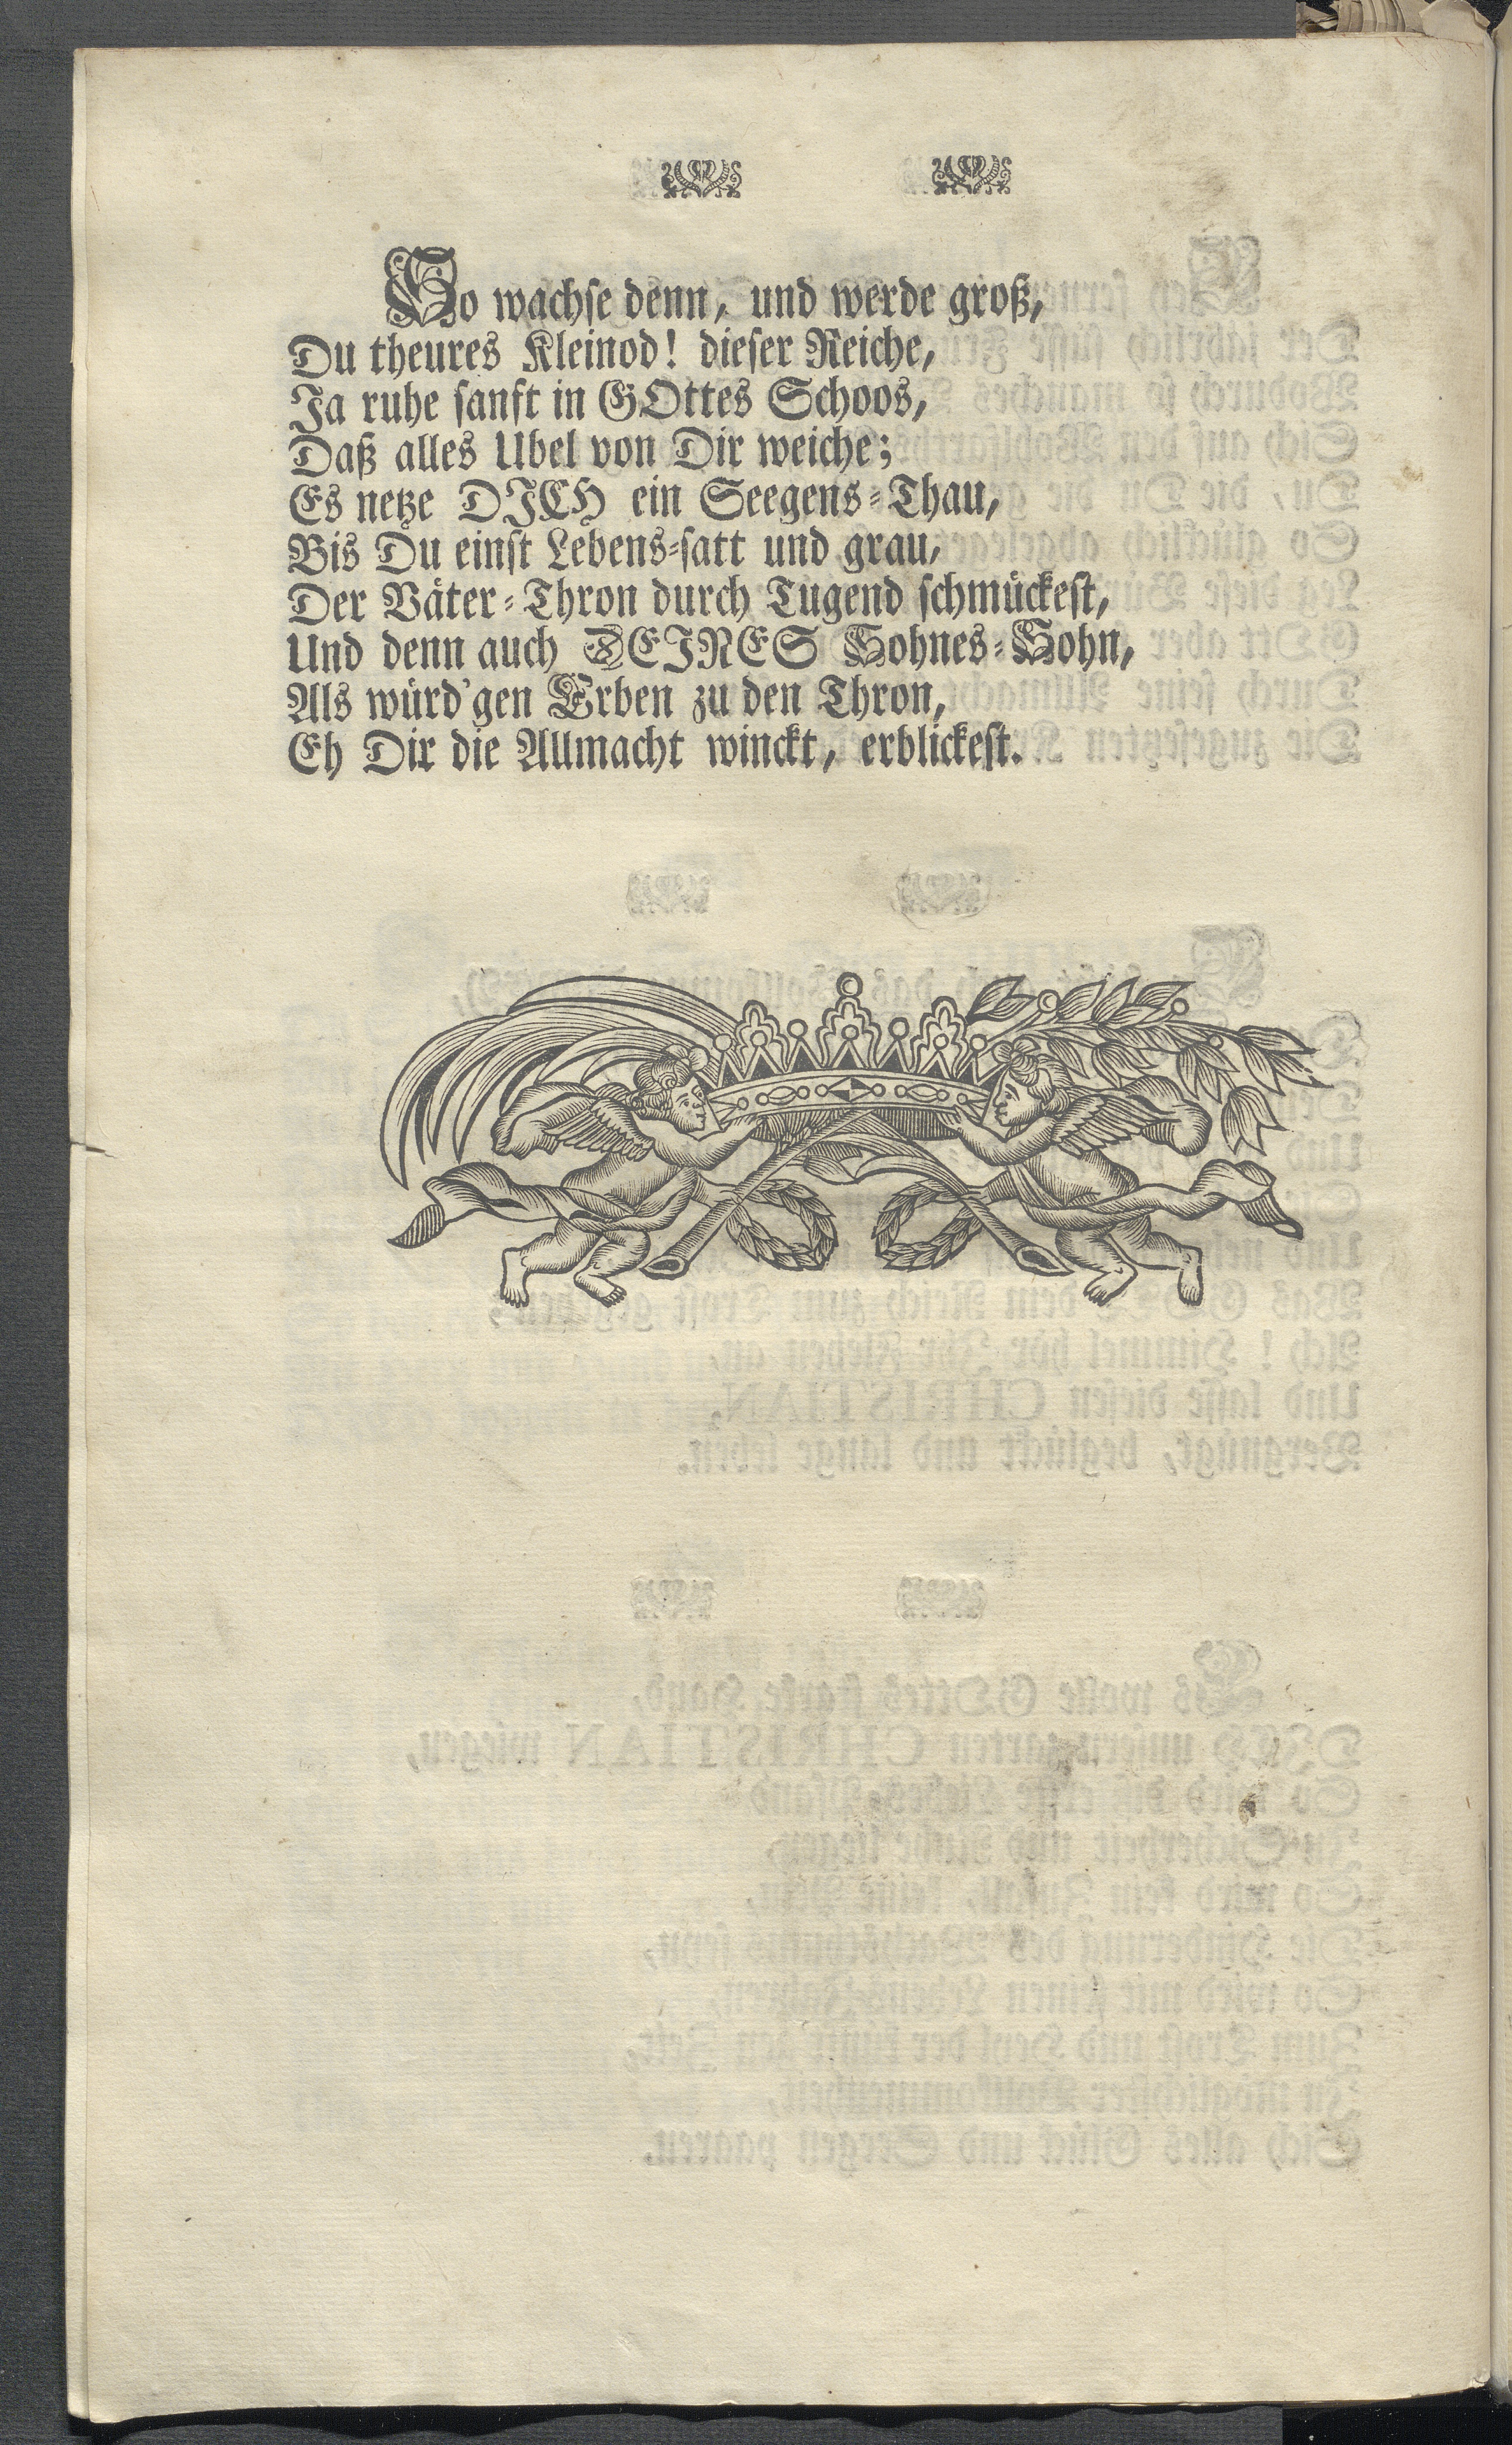 So wachse denn, und werde groß,
Du theures Kleinod! dieser Reiche,
Ja ruhe sanft in GOttes Schoos,
Daß alles Ubel von Dir weiche;
Es netze DICH ein Seegens-Thau,
Bis Du einst Lebens-satt und grau,
Der Väter-Thron durch Tugend schmückest,
Und denn auch DEINES Sohnes-Sohn,
Als würd'gen Erben zu den Thron,
Eh Dir die Allmacht winckt, erblickest.